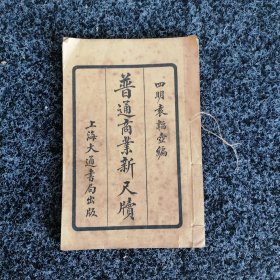 四明袁韜壺編
普通商業新尺牘
上海大通書局出版